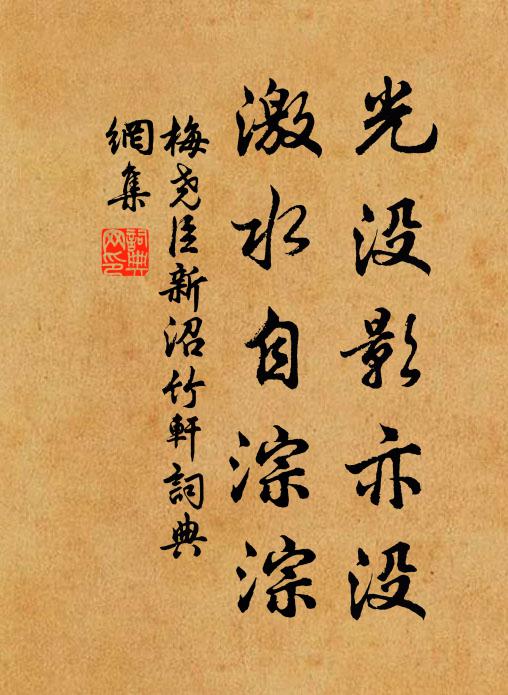 光没影亦没
激水自淙淙
梅尧臣新沼竹軒詞典
網集
詞典网印